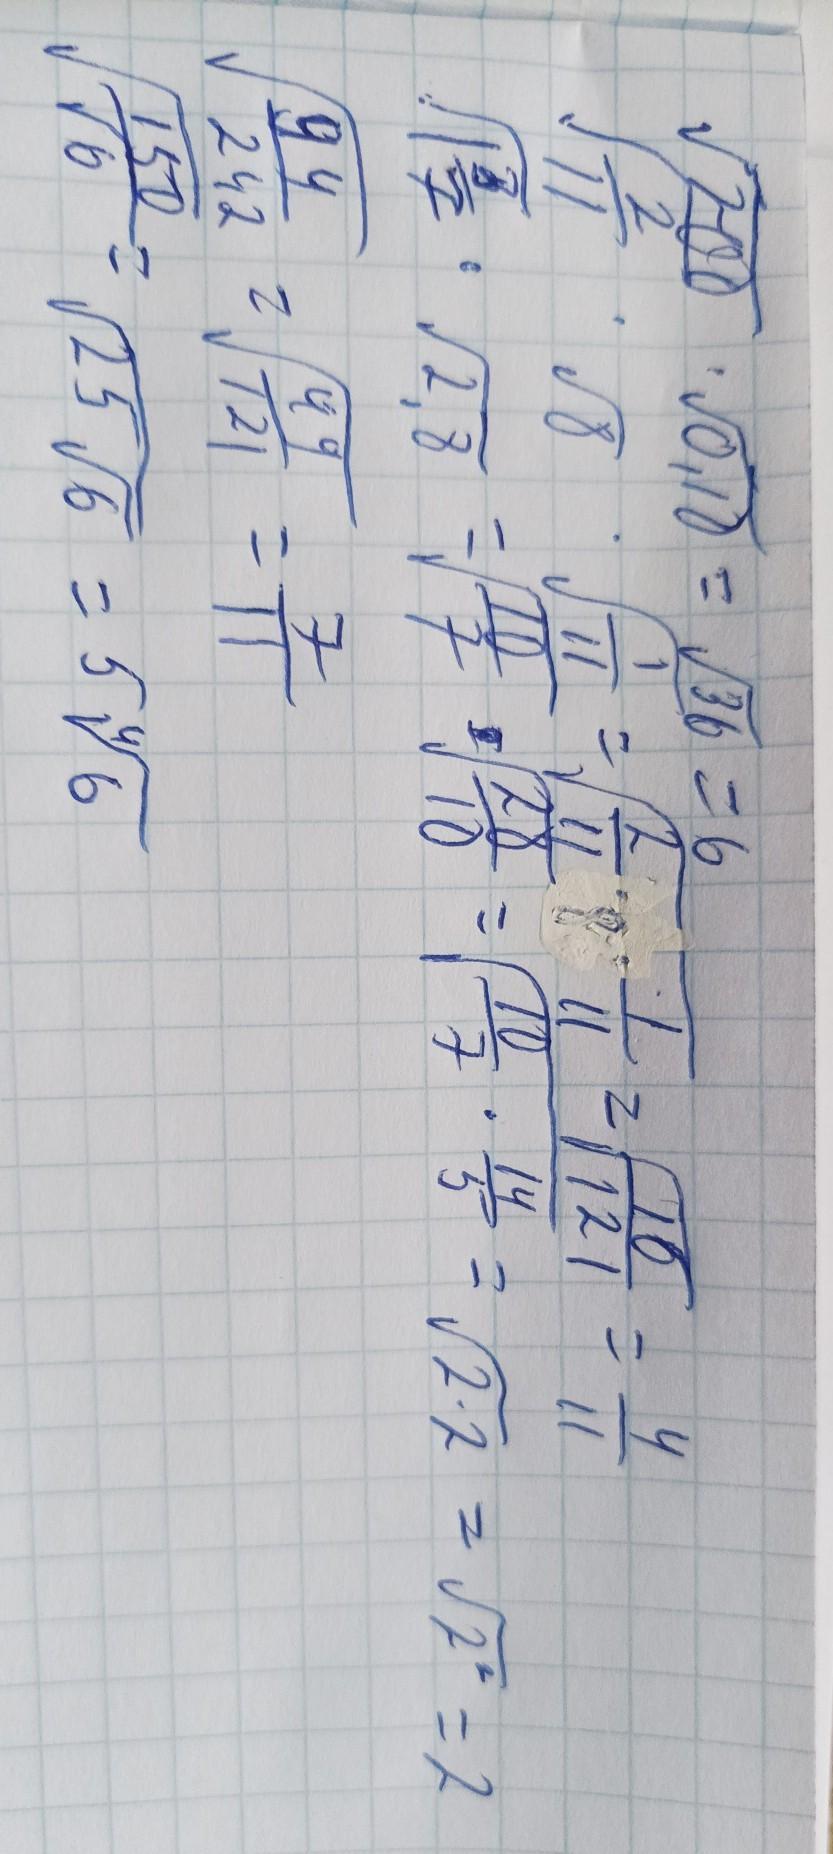 √200 · √0,18 = √36 = 6
√2/11 · √8 · √1/11 = √2/11 · 8 · 1/11 = √16/121 = 4/11
√1 3/7 · √2,8 = √10/7 · √28/10 = √10/7 · 14/5 = √2·2 = √2² = 2
√94/242 = √49/121 = 7/11
√150/√6 = √25√6 = 5∜6